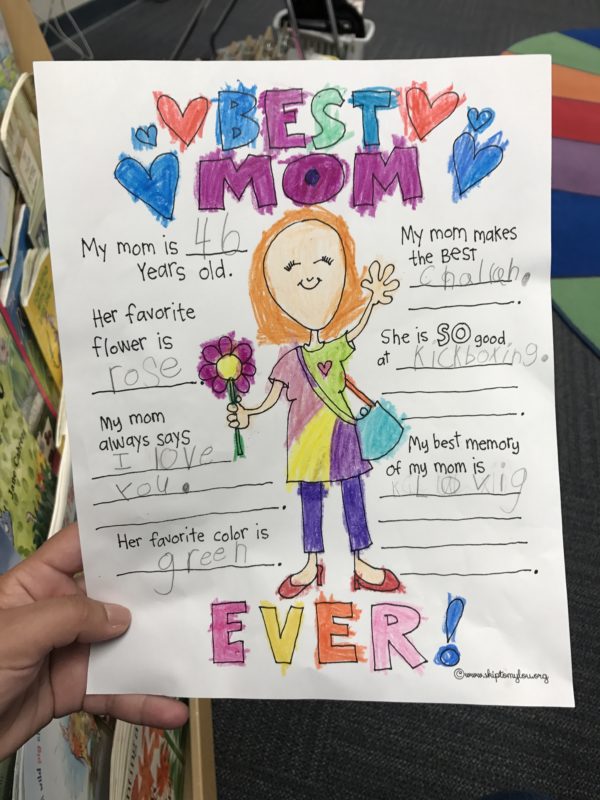 BEST
MOM
My mom is 46
Years old.
Her favorite
flower is
rose.
My mom
always says
I love
you.
Her favorite color is
green.
My mom makes
the BEST
challah.
She is SO good
at kickboxing.
My best memory
of my mom is
EVER!
©www.skiptomylou.org